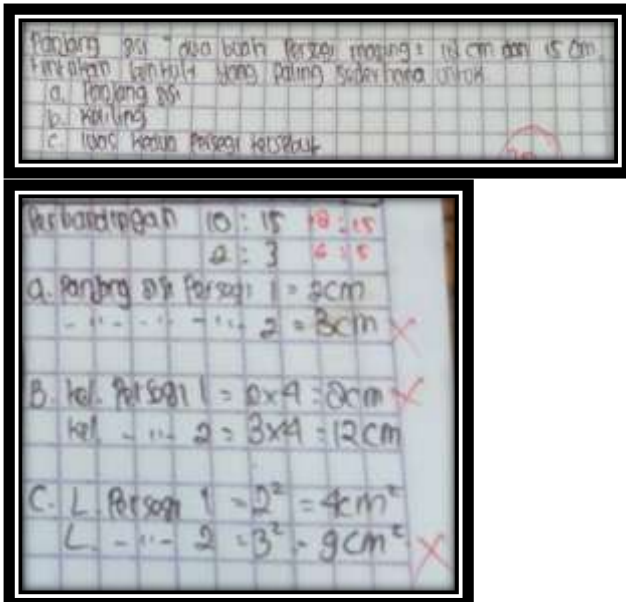 Panjang sisi dua buah Persegi masing² 18 cm dan 15 cm.
tentukan bentuk yang paling sederhana untuk
a. Panjang sisi
b. keliling
c. luas kedua Persegi tersebut
Perbandingan 10 : 15 18 : 15
2 : 3 6 : 5
a. Panjang sisi Persegi 1 = 2cm
- " - - " - - " - 2 = 3cm X
B. kel. Persegi 1 = 2x4 = 8cm X
kel. - " - 2 = 3x4 = 12cm
C. L. Persegi 1 = 2² = 4cm²
L. - " - 2 = 3² = 9cm² X